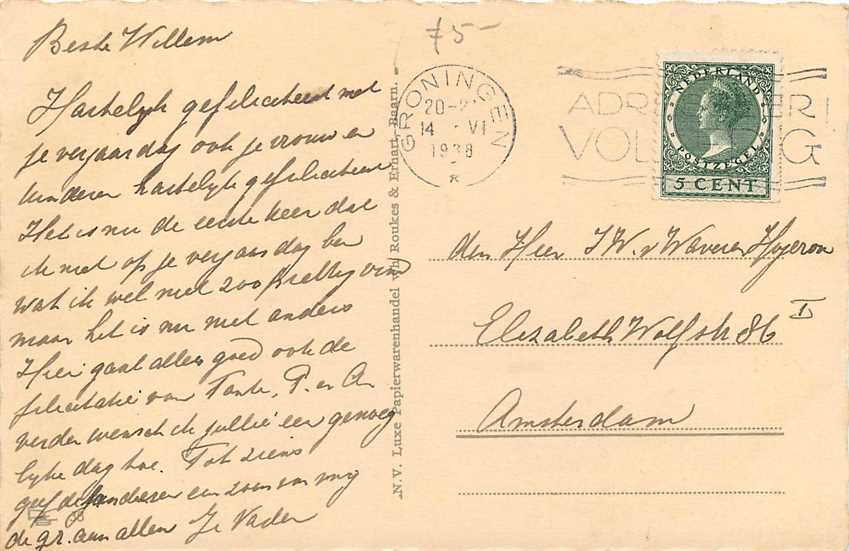 Beste Willem
Hartelijk gefeliciteerd met
je verjaardag ook je vrouw en
kinderen hartelijk gefeliciteerd
Het is nu de eerste keer dat
ik niet op je verjaardag ben
wat ik wel niet zoo prettig vind
maar het is nu niet anders
Hier gaat alles goed ook de
felicitatie van Tante, P. en A
verder wensch ik jullie een genoeg
lijke dag toe. Tot ziens
geef de kinderen een zoen van mij
de gr. aan allen Je Vader
68
75-
N.V. Luxe Papierwarenhandel v/h Roukes & Erhart, Baarn.
GRONINGEN
20-2
14 VI
1938
*
ADR ER
VOL IG
NEDERLAND
POSTZEGEL
5 CENT
den Heer J.W. v Waveren Hogeron
Elizabeth Wolfstr 86 II
Amsterdam